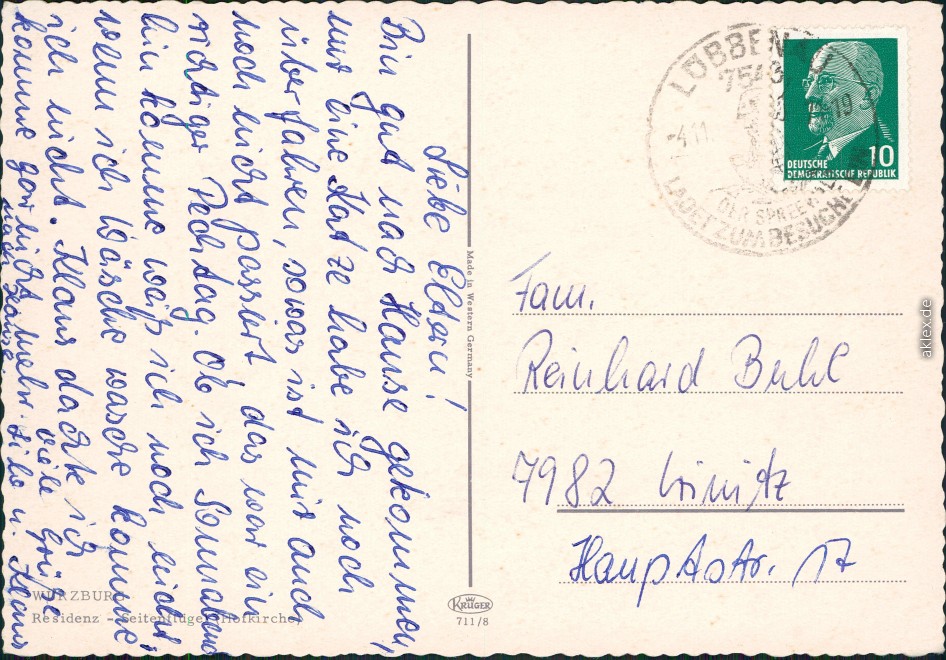 Liebe Eltern!
Bin gut nach Hause gekommen,
nur eine Katze habe ich noch
überfahren, sowas ist mir auch
noch nicht passiert, das war ein
richtiger Pechtag. Ob ich Sonnabend
hin komme weiß ich noch nicht,
wenn ich Wäsche wasche komme
ich nicht. Klaus dachte ich
komme gar nicht mehr
nach Hause.
viele Grüße
u. Klaus
WÜRZBURG
Residenz - Seitenflügel (Hofkirche)
Made in Western Germany
KRÜGER
711/8
LÜBBEN
754
-4.11
19
DER SPREEWALD
LADET ZUM BESUCHE EIN
10
DEUTSCHE
DEMOKRATISCHE REPUBLIK
Fam.
Reinhard Buhl
7982
Hauptstr. 17
aklex.de